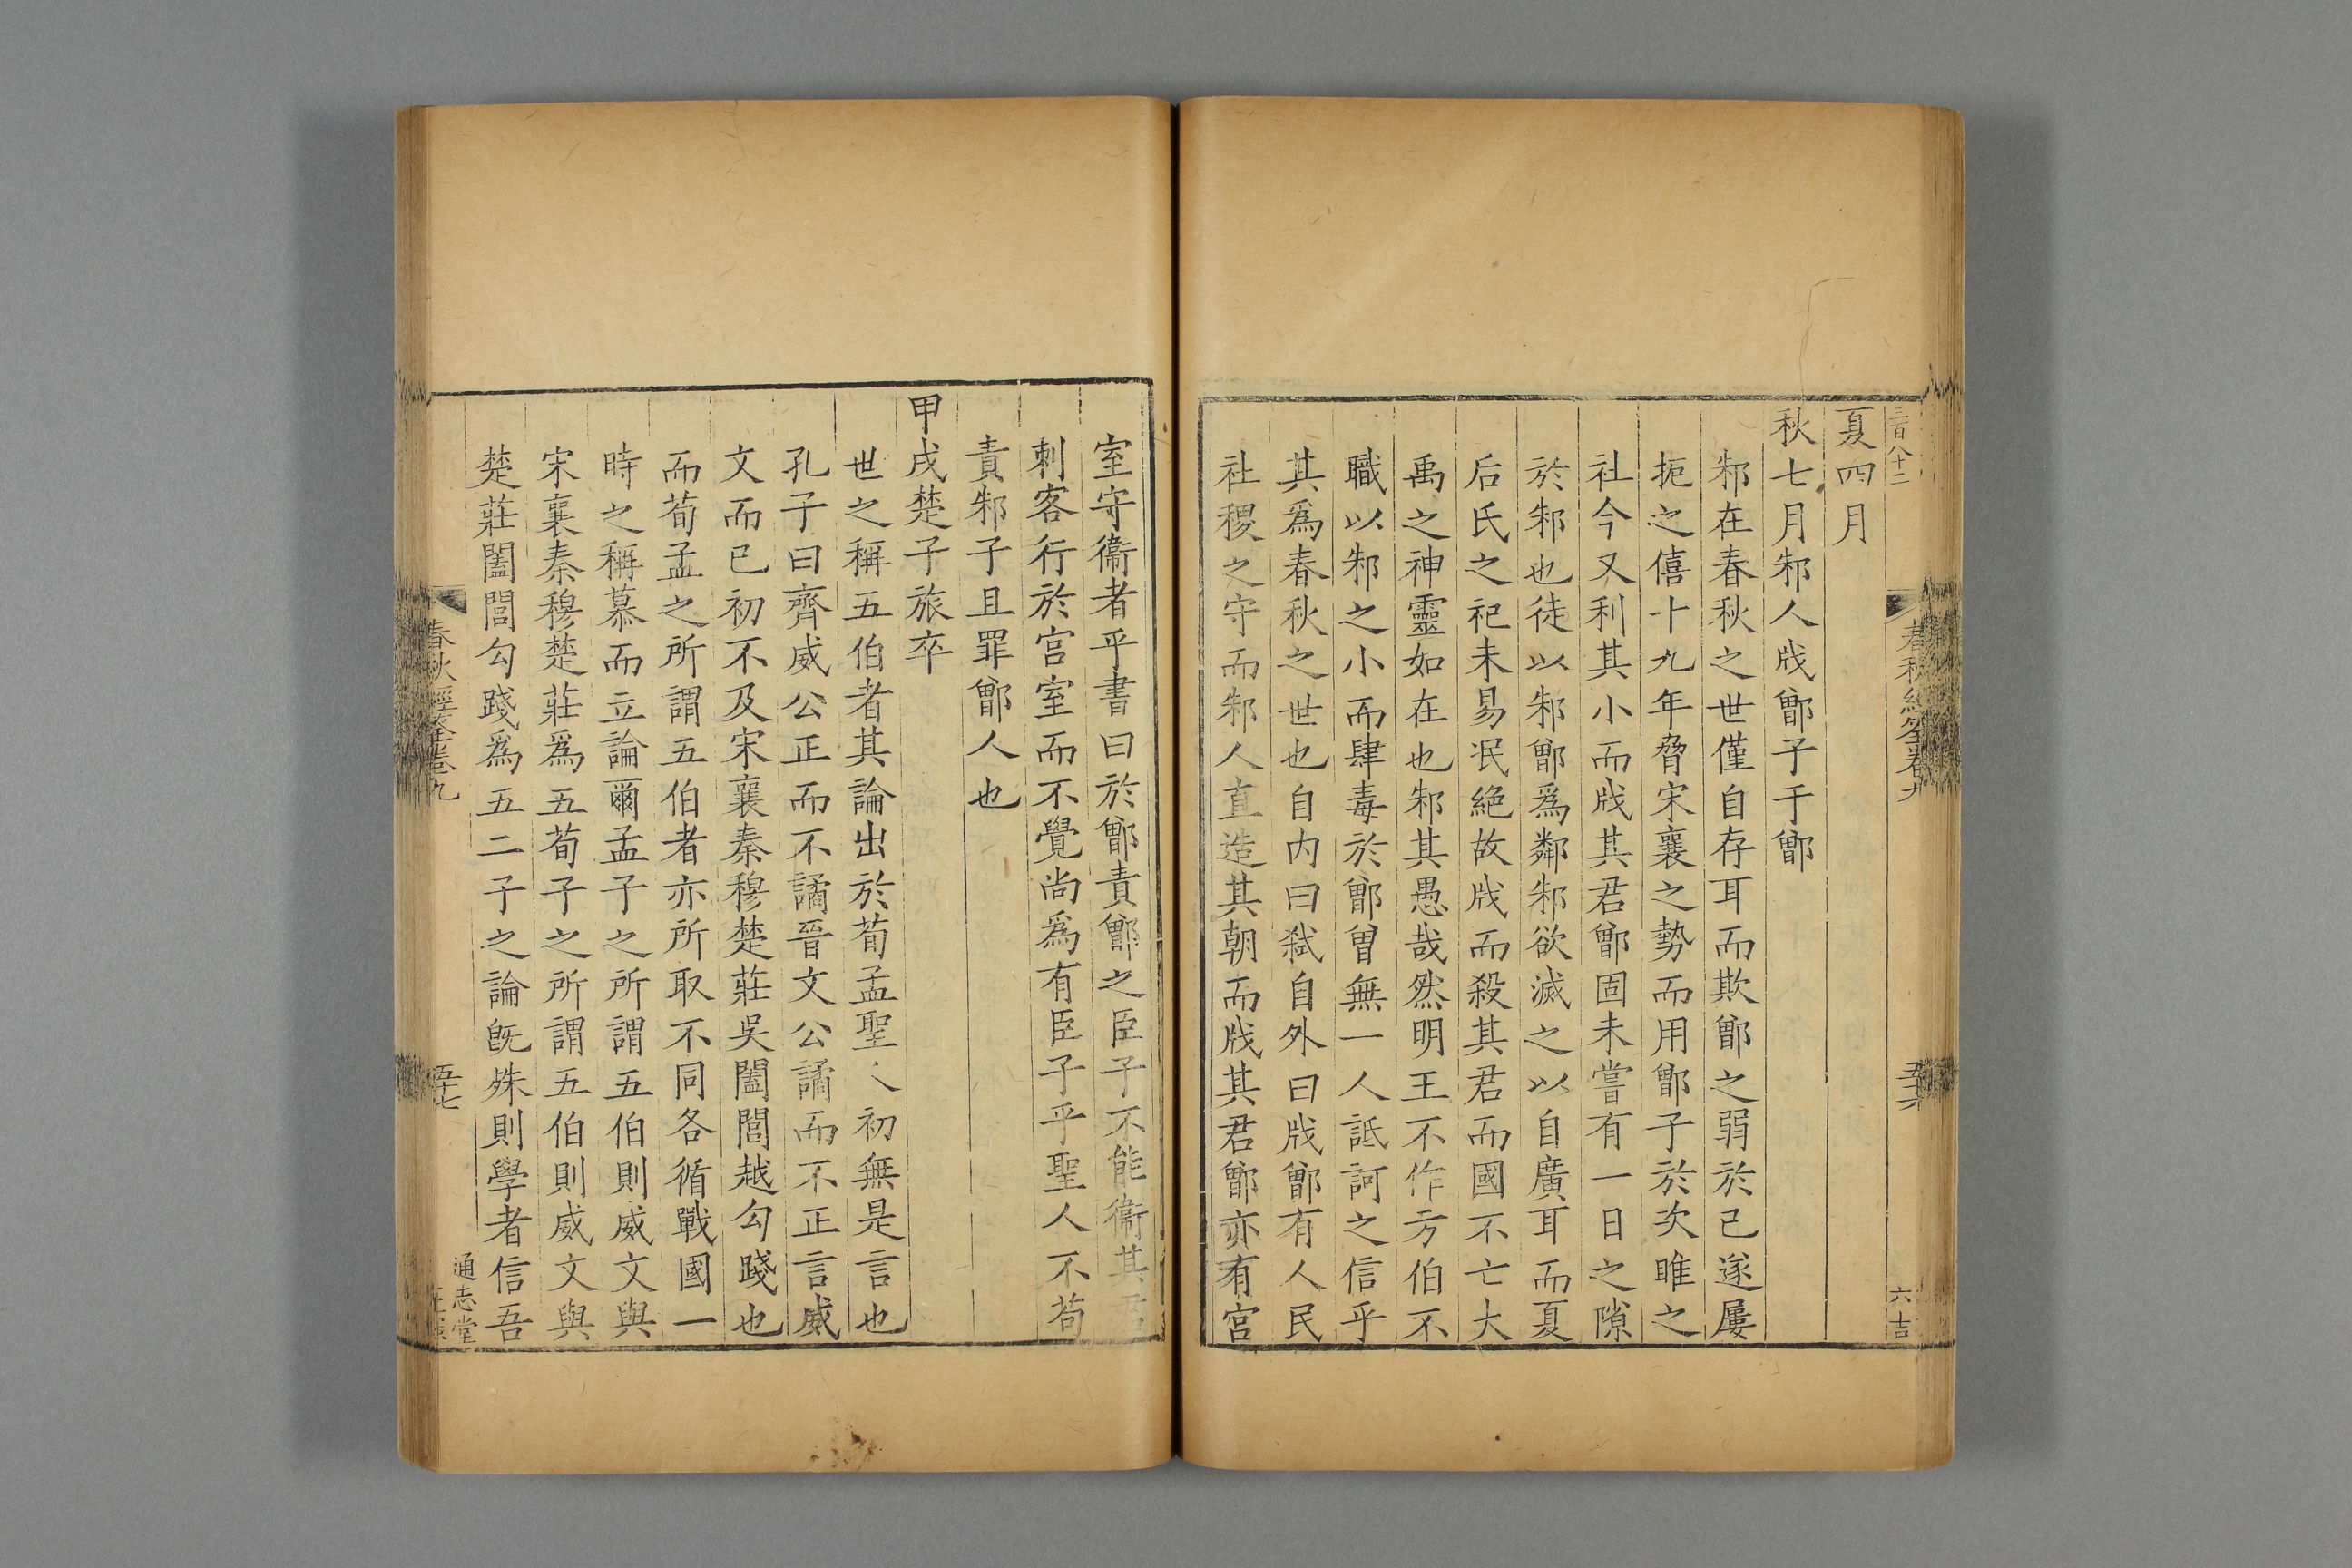 三百八十二
春秋經筌卷九
六吉
夏四月
秋七月邾人戕鄫子于鄫
邾在春秋之世僅自存耳而欺鄫之弱於己遂屢
扼之僖十九年脅宋襄之勢而用鄫子於次睢之
社今又利其小而戕其君鄫固未嘗有一日之隙
於邾也徒以邾鄫爲鄰邾欲滅之以自廣耳而夏
后氏之祀未易泯絶故戕而殺其君而國不亡大
禹之神靈如在也邾其愚哉然明王不作方伯不
職以邾之小而肆毒於鄫曾無一人詆訶之信乎
其爲春秋之世也自内曰弑自外曰戕鄫有人民
社稷之守而邾人直造其朝而戕其君鄫亦有宫
室守衞者乎書曰於鄫責鄫之臣子不能衞其君
刺客行於宫室而不覺尚爲有臣子乎聖人不苟
責邾子且罪鄫人也
甲戌楚子旅卒
世之稱五伯者其論出於荀孟聖人初無是言也
孔子曰齊威公正而不譎晉文公譎而不正言威
文而已初不及宋襄秦穆楚莊吳闔閭越勾踐也
而荀孟之所謂五伯者亦所取不同各循戰國一
時之稱慕而立論爾孟子之所謂五伯則威文與
宋襄秦穆楚莊爲五荀子之所謂五伯則威文與
楚莊闔閭勾踐爲五二子之論旣殊則學者信吾
春秋經筌卷九
五十七
通志堂